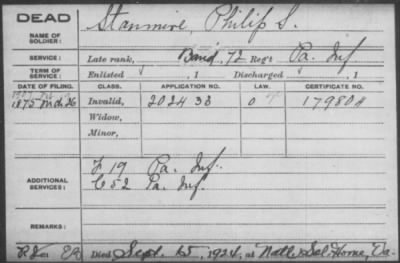 DEAD
NAME OF SOLDIER: Stanmire, Philip S.
SERVICE: Late rank, Band, 72 Reg't Pa. Inf
TERM OF SERVICE: Enlisted , 1 Discharged , 1
DATE OF FILING. CLASS. APPLICATION NO. LAW. CERTIFICATE NO.
1875 Mch 26 Invalid, 202433 0 179808
Widow,
Minor,
F 19 Pa. Inf.
ADDITIONAL SERVICES: C 52 Pa. Inf.
REMARKS:
Died Sept. 15, 1924, at Natl. Sol Home, Va.